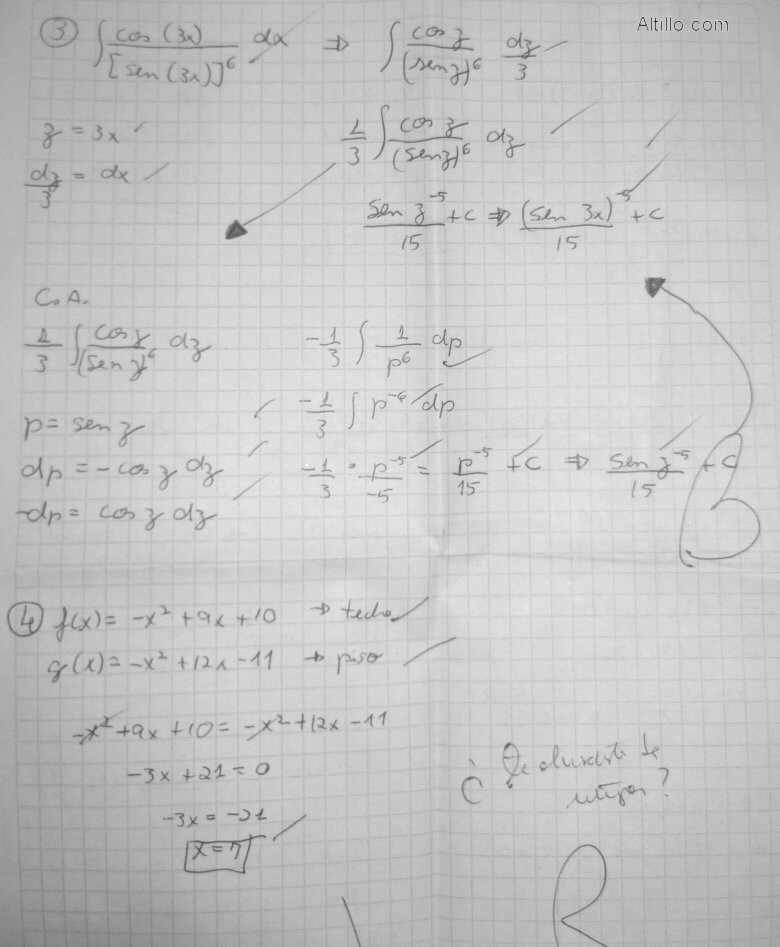 Altillo com
③ ∫ cos (3x) / [sen (3x)]⁶ dx ⇒ ∫ cos z / (sen z)⁶ dz/3
z = 3x
1/3 ∫ cos z / (sen z)⁶ dz
dz/3 = dx
sen z⁻⁵ / 15 + c ⇒ (sen 3x)⁻⁵ / 15 + c
C.A.
1/3 ∫ cos z / (sen z)⁶ dz
-1/3 ∫ 1/p⁶ dp
-1/3 ∫ p⁻⁶ dp
p = sen z
dp = - cos z dz
-1/3 · p⁻⁵/-5 = p⁻⁵/15 + c ⇒ sen z⁻⁵ / 15 + c
-dp = cos z dz
B
④ f(x) = -x² + 9x + 10 → techo
g(x) = -x² + 12x - 11 → piso
-x² + 9x + 10 = -x² + 12x - 11
-3x + 21 = 0
-3x = -21
x = 7
¿ Te olvidaste de
integrar?
R